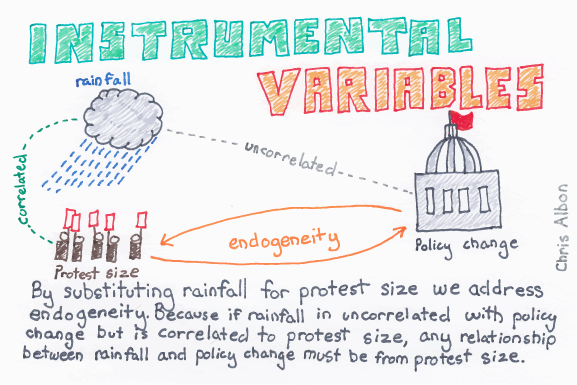 INSTRUMENTAL
VARIABLES
rainfall
uncorrelated
correlated
endogeneity
Protest size
Policy change
Chris Albon
By substituting rainfall for protest size we address
endogeneity. Because if rainfall in uncorrelated with policy
change but is correlated to protest size, any relationship
between rainfall and policy change must be from protest size.